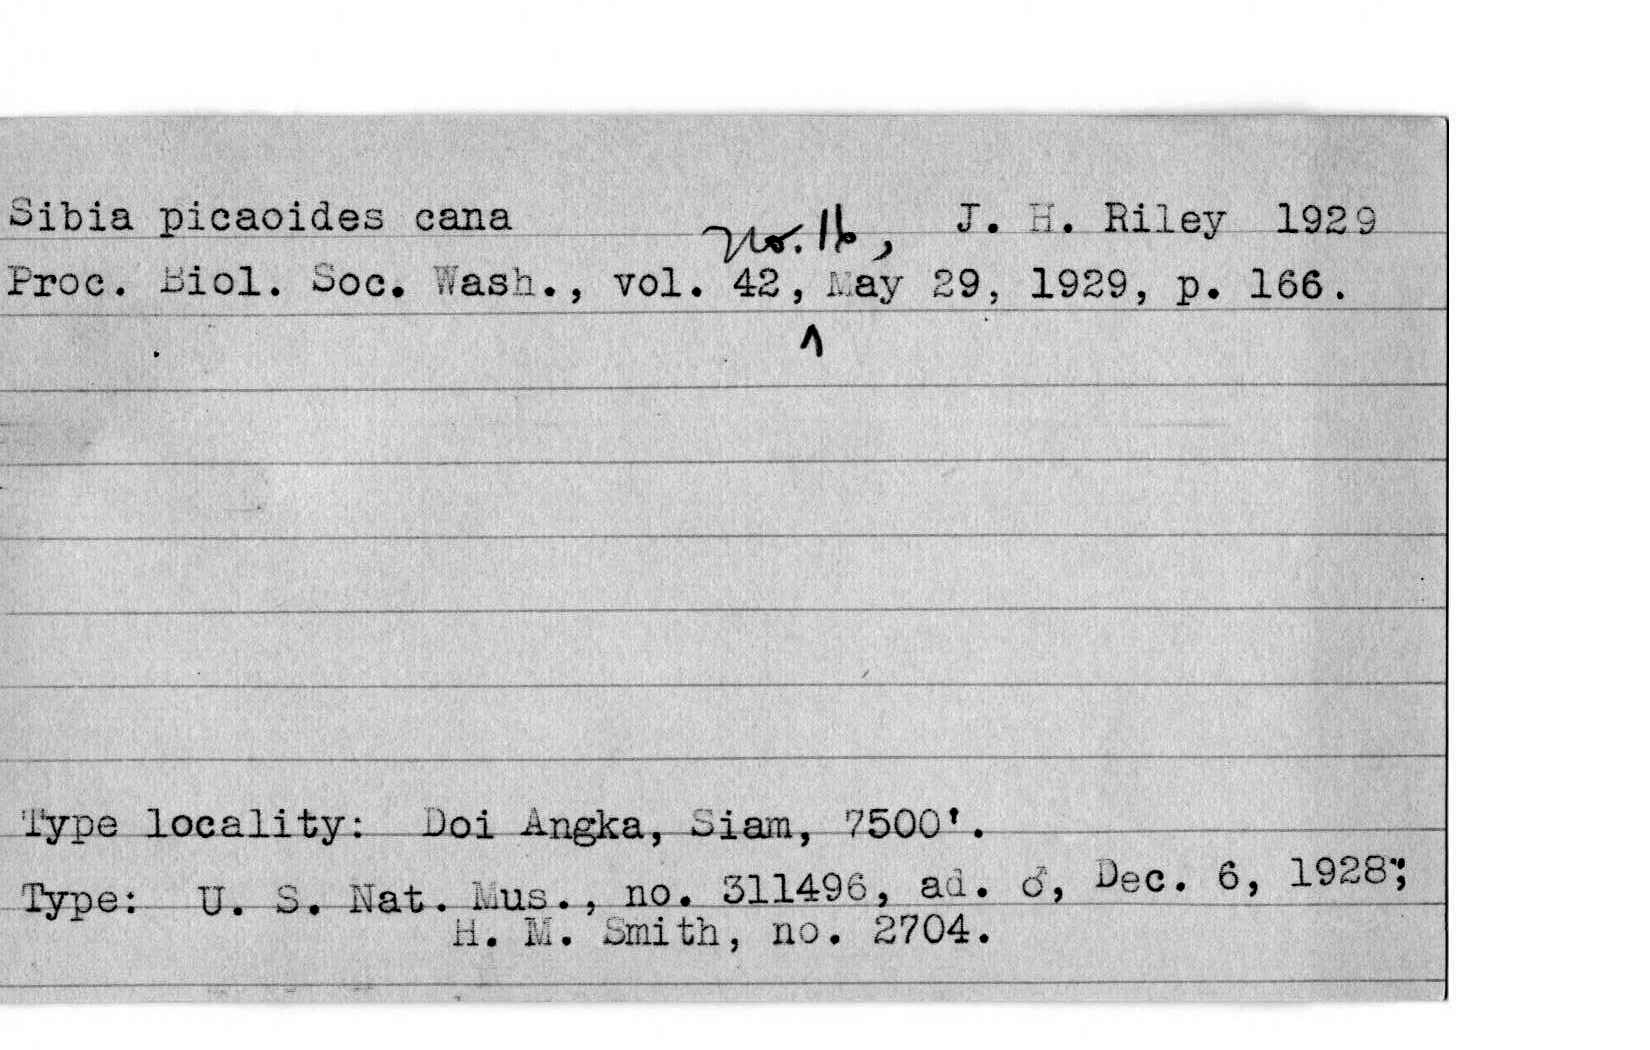 Sibia picaoides cana J. H. Riley 1929
no. 16,
Proc. Biol. Soc. Wash., vol. 42, ^ May 29, 1929, p. 166.
Type locality: Doi Angka, Siam, 7500'.
Type: U. S. Nat. Mus., no. 311496, ad. ♂, Dec. 6, 1928;
H. M. Smith, no. 2704.